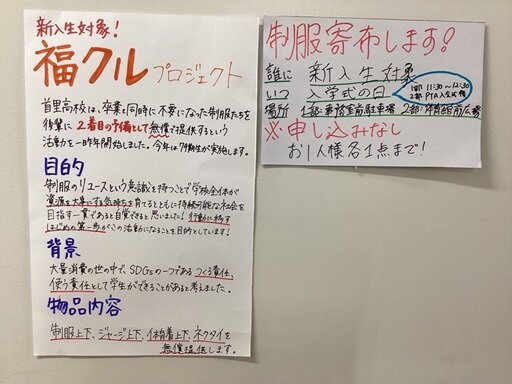 新入生対象!
福クルプロジェクト
首里高校は、卒業と同時に不要になった制服たちを
後輩に2着目の予備として無償で提供するという
活動を一昨年開始しました。今年は79期生が実施します。
目的
制服のリユースという意識を持つことで学校全体が
資源を大事にする気持ちを育てるとともに持続可能な社会を
目指す一貫であると自覚できると思いました!行動に移す
はじめの第一歩がこの活動になることを目的としています!
背景
大量消費の世の中で、SDGsの一つであるつくる責任、
使う責任として学生ができることがあると考えました。
物品内容
制服上下、ジャージ上下、体育着上下、ネクタイを
無償提供します。
制服寄布します!
誰に 新入生対象
いつ 入学式の日
1部 11:30~12:30
2部 PTA入会式後
場所 1部:事務室前駐車場 2部:体育館前広場
※申し込みなし
お1人様各1点まで!